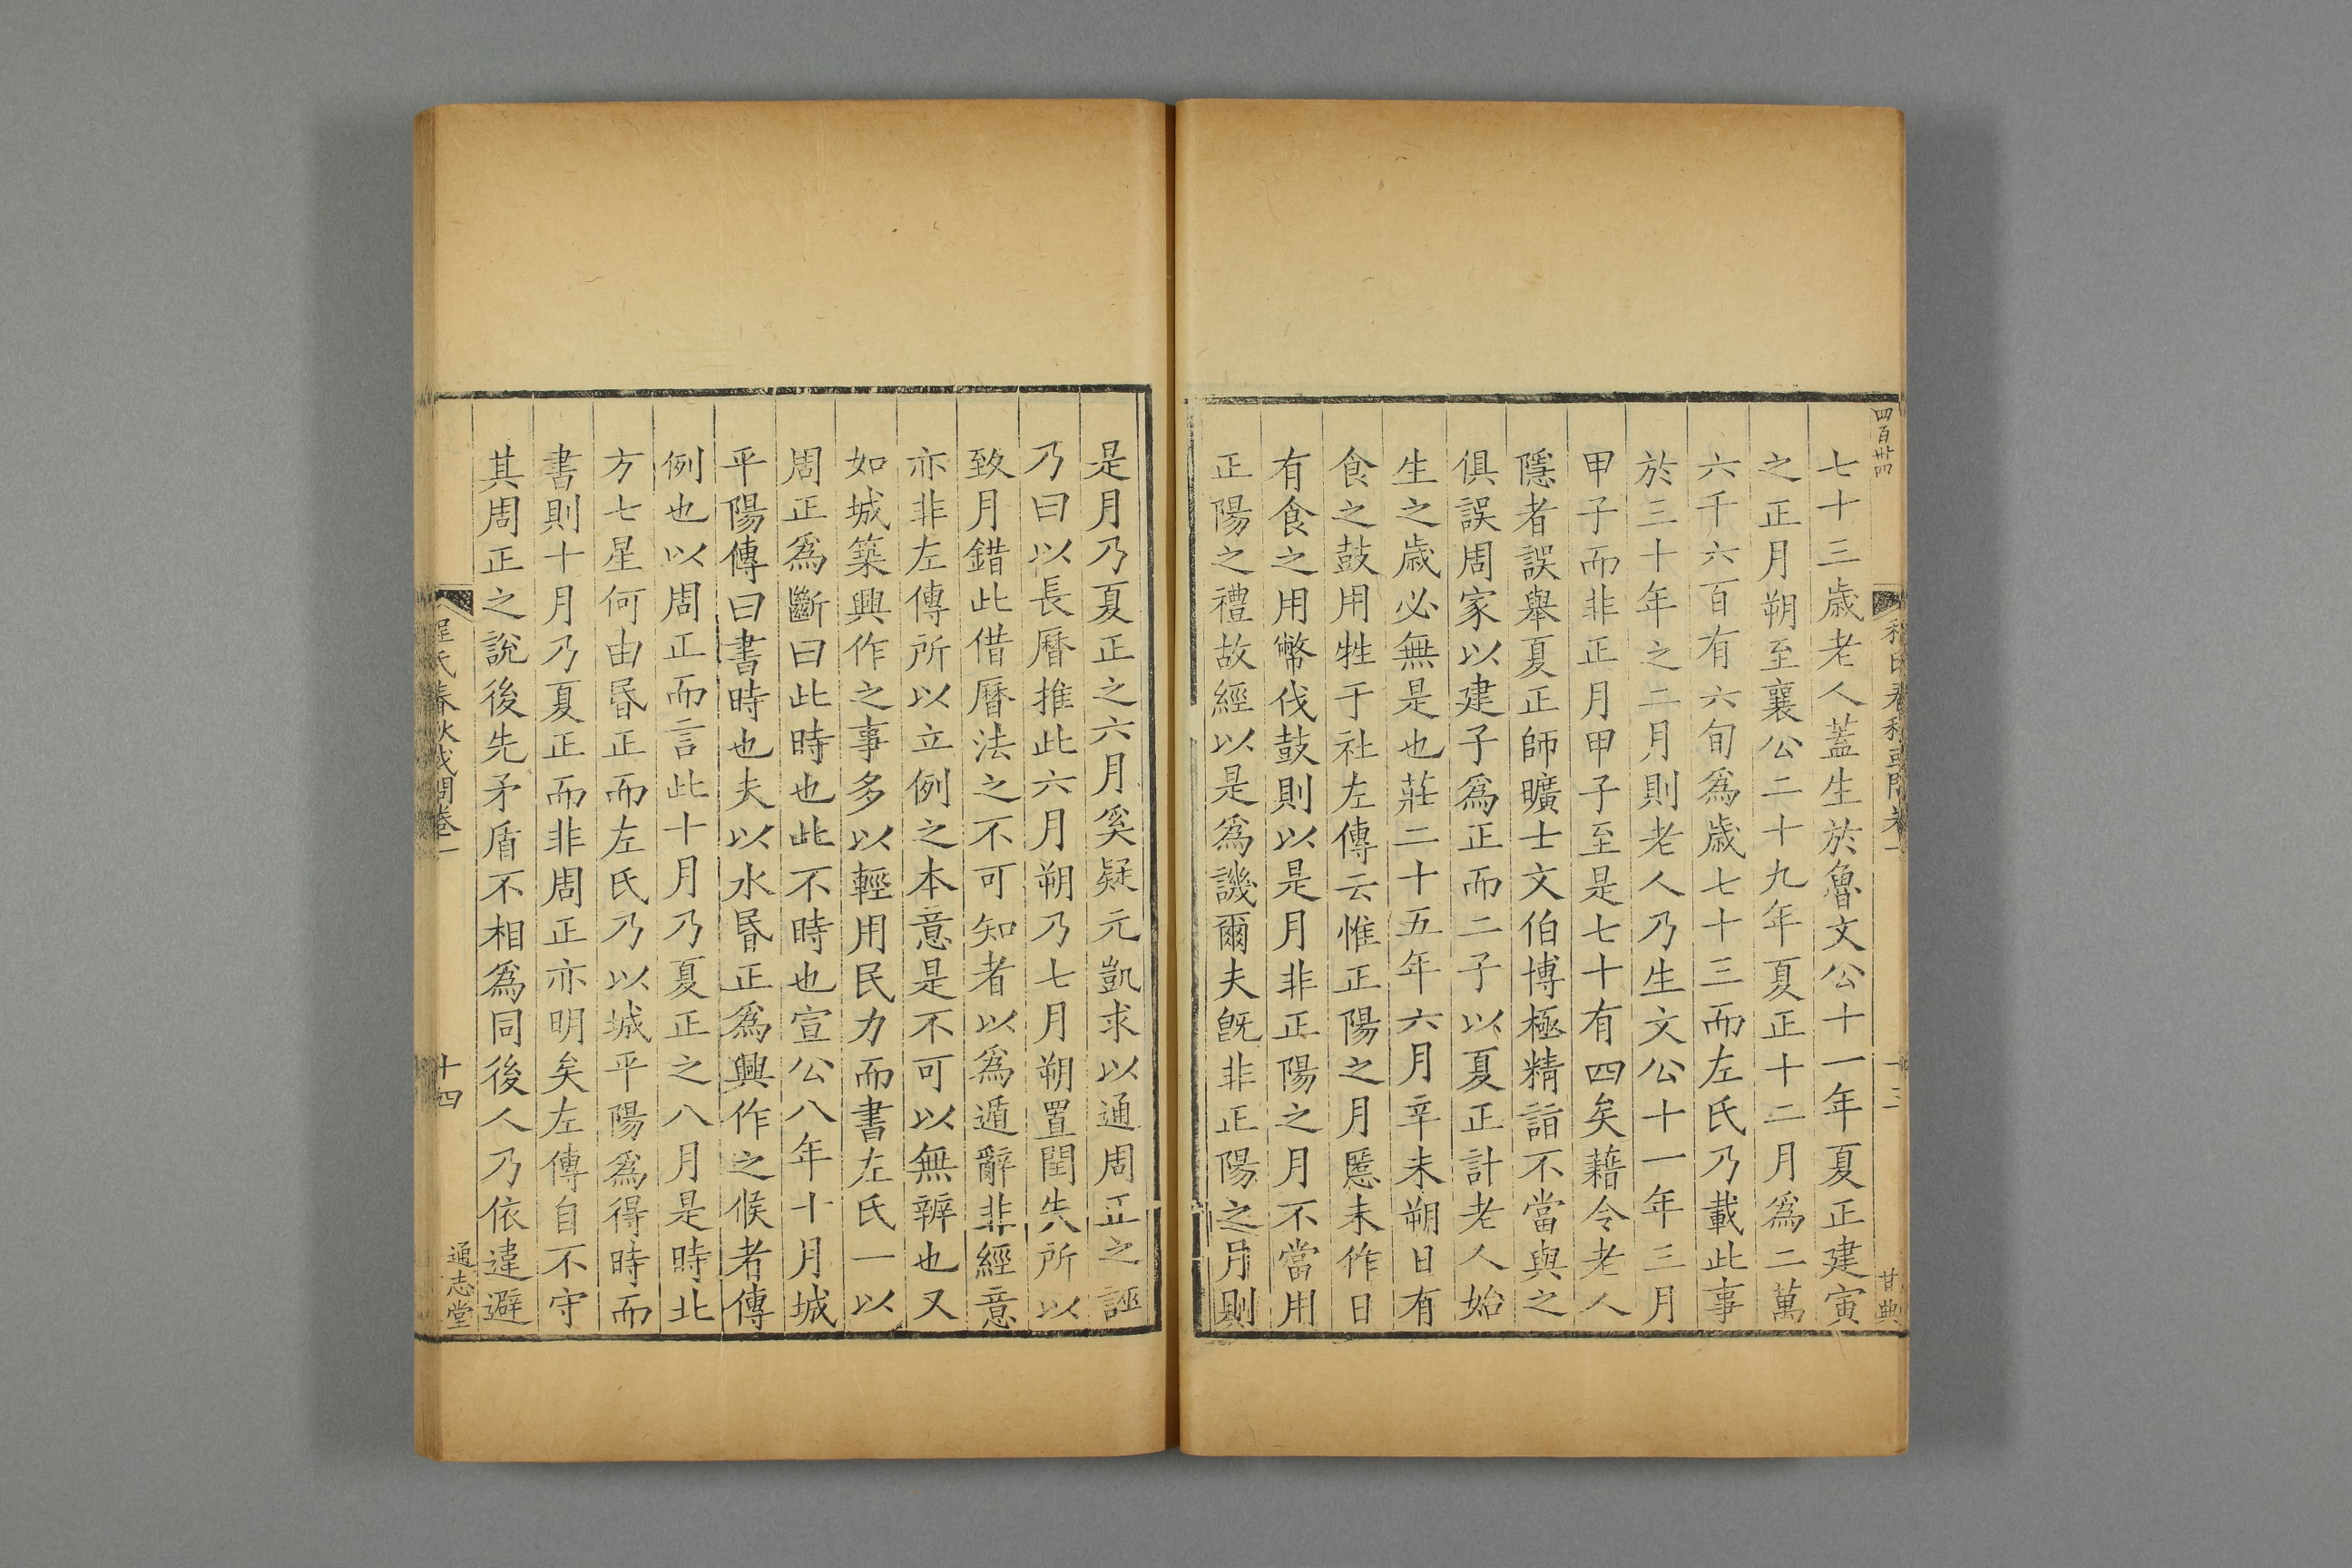 四百卌四
七十三歳老人蓋生於魯文公十一年夏正建寅
之正月朔至襄公二十九年夏正十二月爲二萬
六千六百有六旬爲歳七十三而左氏乃載此事
於三十年之二月則老人乃生文公十一年三月
甲子而非正月甲子至是七十有四矣藉令老人
隱者誤舉夏正師曠士文伯博極精詣不當與之
俱誤周家以建子爲正而二子以夏正計老人始
生之歳必無是也莊二十五年六月辛未朔日有
食之鼓用牲于社左傳云惟正陽之月慝未作日
有食之用幣伐鼓則以是月非正陽之月不當用
正陽之禮故經以是爲譏爾夫旣非正陽之月則
甘典
是月乃夏正之六月奚疑元凱求以通周正之誣
乃曰以長曆推此六月朔乃七月朔置閏失所以
致月錯此借曆法之不可知者以爲遁辭非經意
亦非左傳所以立例之本意是不可以無辨也又
如城築興作之事多以輕用民力而書左氏一以
周正爲斷曰此時也此不時也宣公八年十月城
平陽傳曰書時也夫以水昏正爲興作之候者傳
例也以周正而言此十月乃夏正之八月是時北
方七星何由昏正而左氏乃以城平陽爲得時而
書則十月乃夏正而非周正亦明矣左傳自不守
其周正之說後先矛盾不相爲同後人乃依違避
程氏春秋或問卷一
十四
通志堂